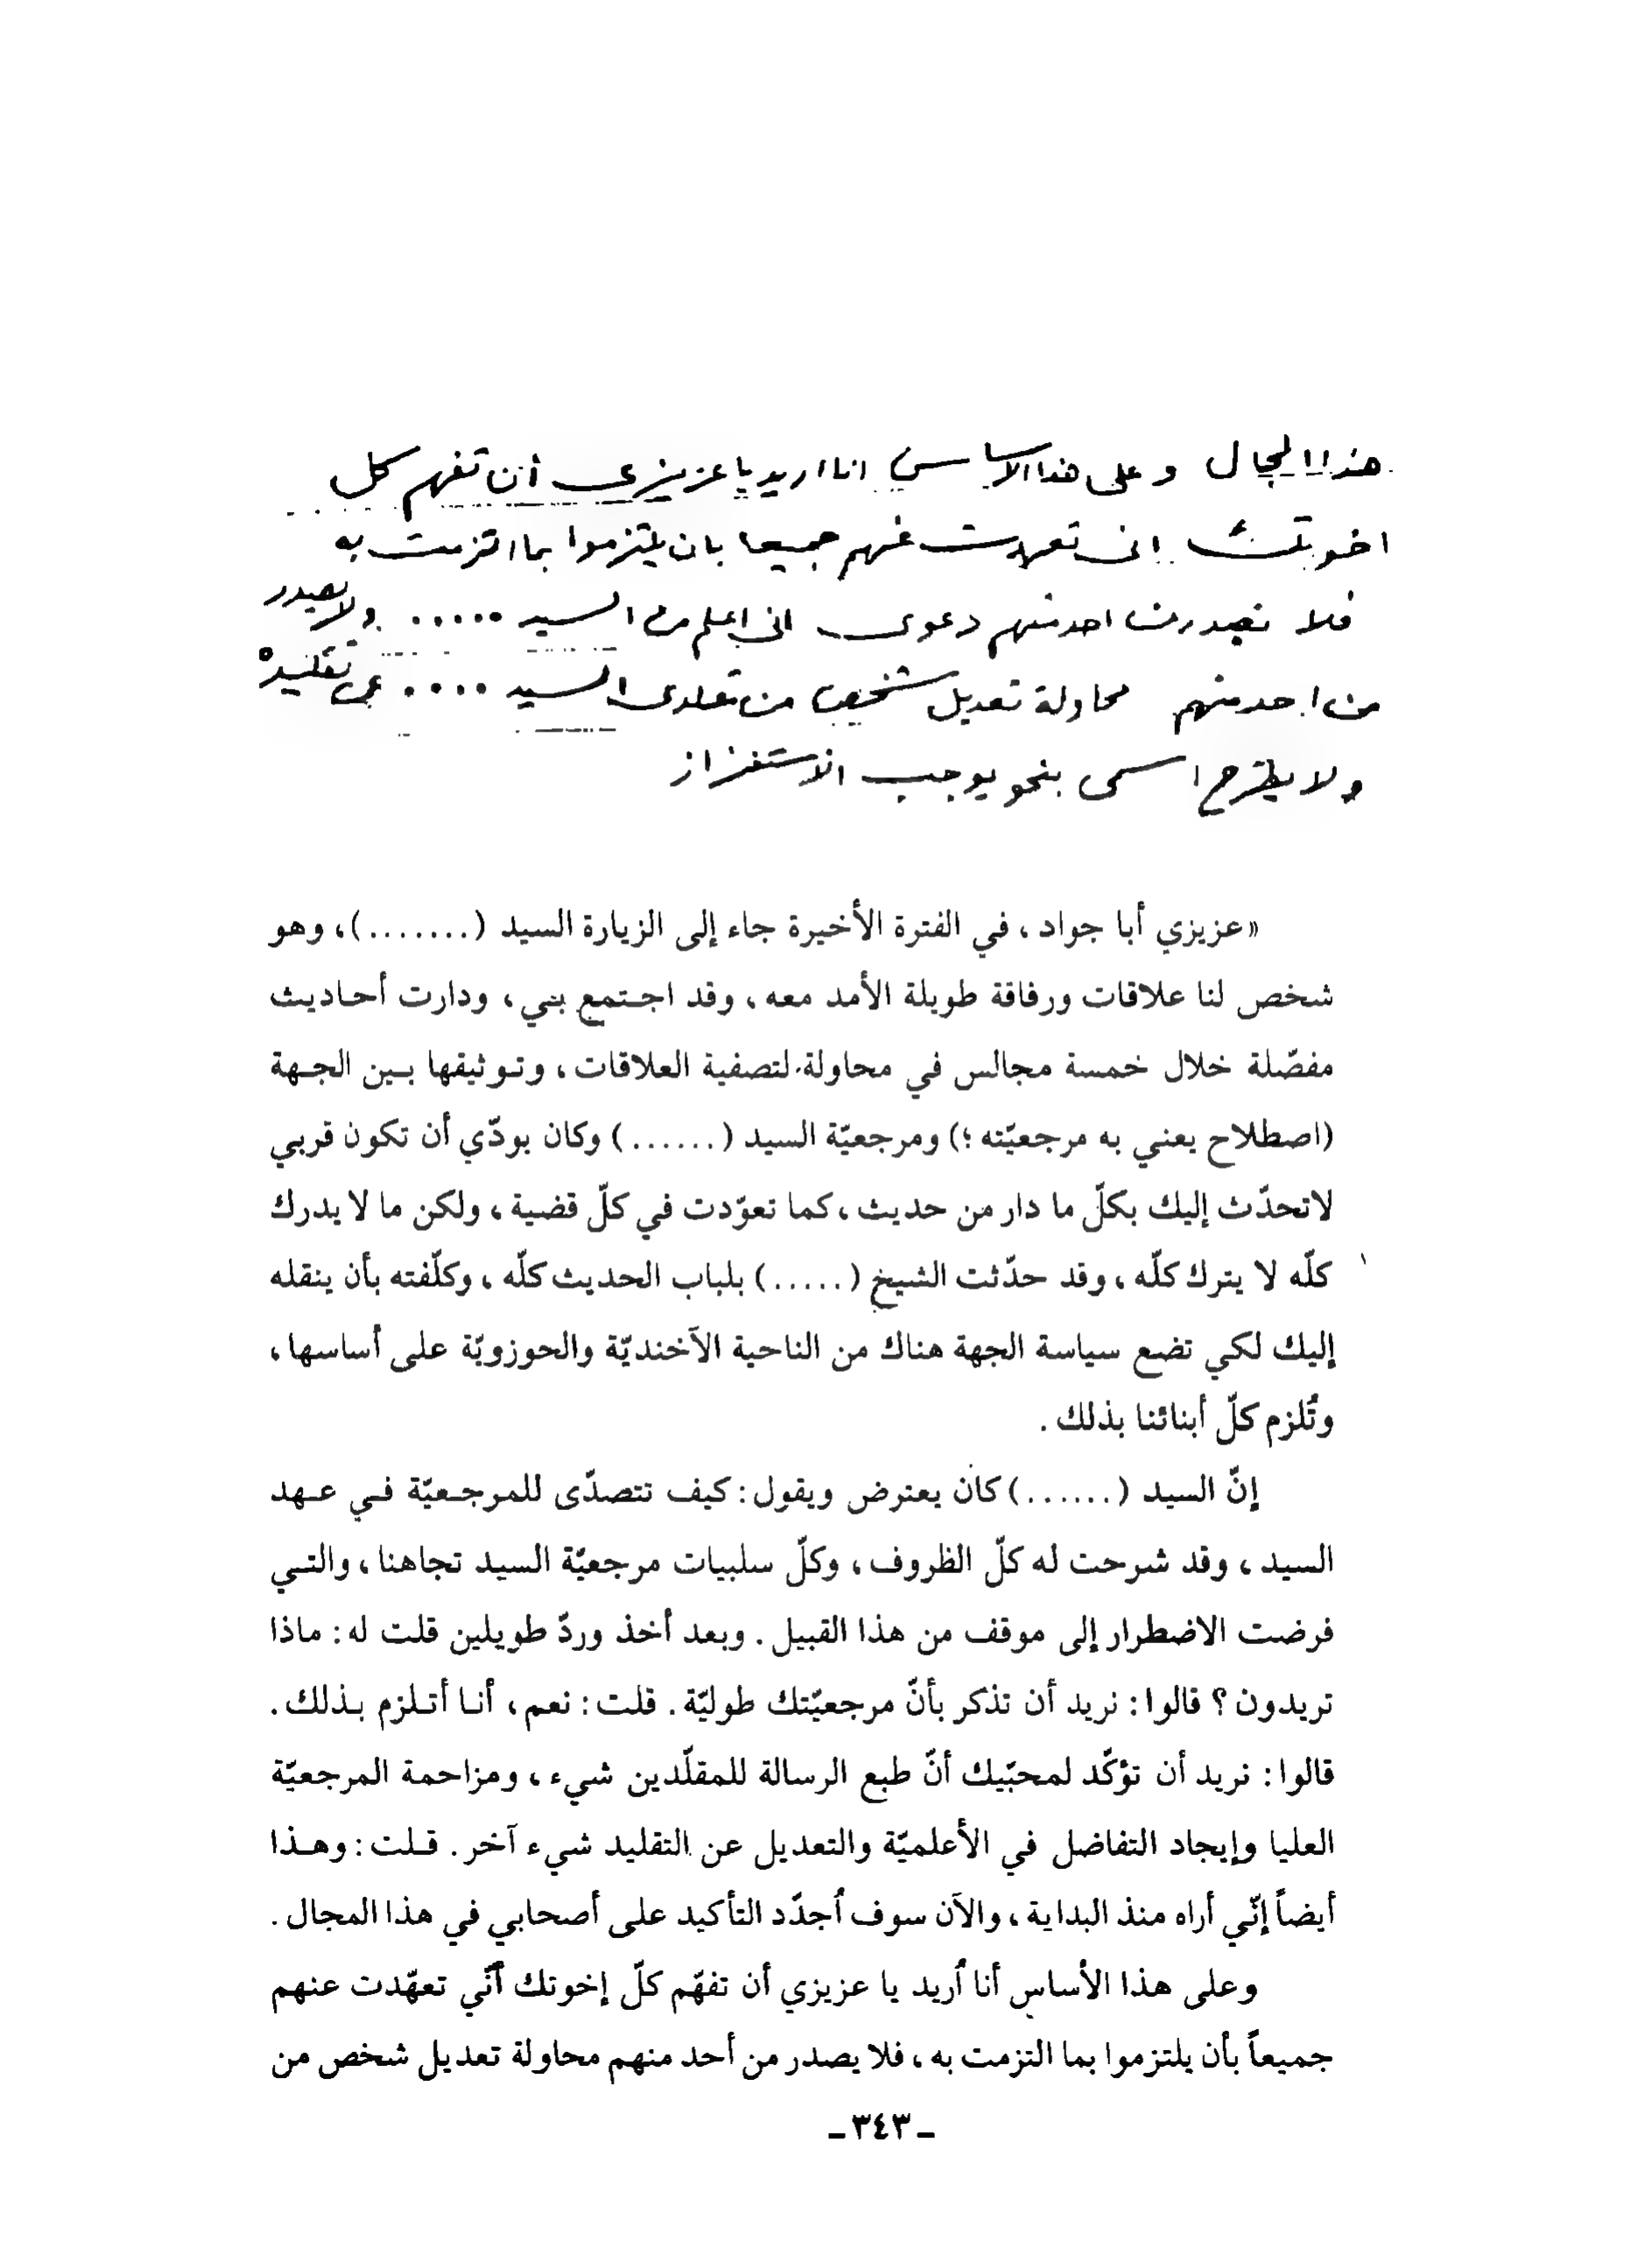 هذا المجال وعلى هذا الاساس انا اريد يا عزيزي أن تفهم كل
اخوتك اني تعهدت عنهم جميعا بان يلتزموا بما التزمت به
فلا تصدرن من احد منهم دعوى اني اعلم من السيد ..... ولا يصدر
من احد منهم محاولة تعديل شخص من مقلدي السيد .... عن تقليده
ولا يطرح اسمي بنحو يوجب الاستفزاز
«عزيزي أبا جواد ، في الفترة الأخيرة جاء إلى الزيارة السيد (.......)، وهو
شخص لنا علاقات ورفاقة طويلة الأمد معه ، وقد اجتمع بي ، ودارت أحاديث
مفصّلة خلال خمسة مجالس في محاولة لتصفية العلاقات ، وتوثيقها بين الجهة
(اصطلاح يعني به مرجعيّته ؛) ومرجعيّة السيد (......) وكان بودّي أن تكون قربي
لاتحدّث إليك بكلّ ما دار من حديث ، كما تعوّدت في كلّ قضية ، ولكن ما لا يدرك
كلّه لا يترك كلّه ، وقد حدّثت الشيخ (.....) بلباب الحديث كلّه ، وكلّفته بأن ينقله
إليك لكي تضع سياسة الجهة هناك من الناحية الآخنديّة والحوزويّة على أساسها ،
وتُلزم كلّ أبنائنا بذلك .
إنّ السيد (......) كان يعترض ويقول : كيف تتصدّى للمرجعيّة في عهد
السيد ، وقد شرحت له كلّ الظروف ، وكلّ سلبيات مرجعيّة السيد تجاهنا ، والتي
فرضت الاضطرار إلى موقف من هذا القبيل . وبعد أخذ وردّ طويلين قلت له : ماذا
تريدون ؟ قالوا : نريد أن تذكر بأنّ مرجعيّتك طوليّة . قلت : نعم ، أنا أتلزم بذلك .
قالوا : نريد أن تؤكّد لمحبّيك أنّ طبع الرسالة للمقلّدين شيء ، ومزاحمة المرجعيّة
العليا وإيجاد التفاضل في الأعلميّة والتعديل عن التقليد شيء آخر . قلت : وهذا
أيضاً إنّي أراه منذ البداية ، والآن سوف أُجدّد التأكيد على أصحابي في هذا المجال .
وعلى هذا الأساس أنا أُريد يا عزيزي أن تفهّم كلّ إخوتك أنّي تعهّدت عنهم
جميعاً بأن يلتزموا بما التزمت به ، فلا يصدر من أحد منهم محاولة تعديل شخص من
ـ ٣٤٣ ـ